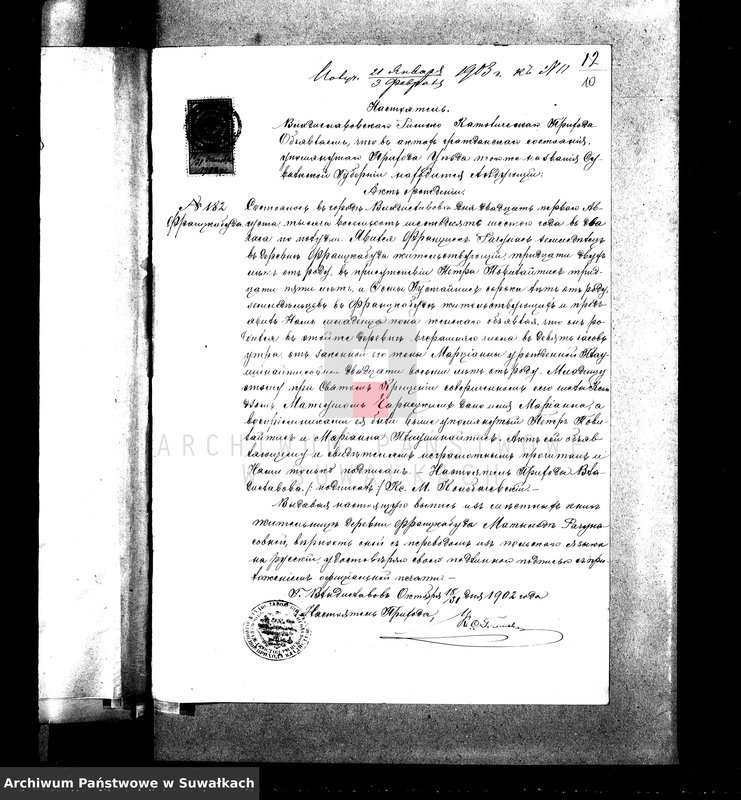 21 Января
3 Февраля
1903 г. къ № 11
12
10
Настоятель
Владиславовскаго Римско Католическаго Прихода
Объявляетъ, что въ актахъ гражданскаго состоянія,
упомянутаго Прихода Уѣзда тогоже названія Су-
валкской Губерніи находится слѣдующій:
Актъ рожденія.
№ 182
Францкабуда
Состоялось въ городѣ Владиславовѣ дня двадцать перваго Ав-
густа тысяча восемьсотъ шестьдесятъ шестого года въ два
часа по полудни. Явился Францискъ земледѣлецъ
въ деревнѣ Францкабуда жительствующій, тридцати двухъ
лѣтъ отъ роду, въ присутствіи Петра Повилайтиса трид-
цати пяти лѣтъ, и сорока лѣтъ отъ роду,
земледѣльцевъ въ Францкабудѣ жительствующихъ и предъ-
явилъ Намъ младенца пола женскаго объявляя, что онъ ро-
дился въ деревнѣ вчерашняго числа въ девять часовъ
утра, отъ законной его жены Маріанны урожденной
двадцати восьми лѣтъ отъ роду. Младенцу
этому при Святомъ Крещеніи совершенномъ сего числа Ксен-
дзомъ Матеушомъ Чарнецкимъ дано имя Маріанна, а
воспріемниками ея были выше упомянутый Петръ Пови-
лайтисъ и Маріанна Актъ сей объяв-
ляющему и свидѣтелямъ неграмотнымъ прочитанъ и
Нами только подписанъ. Настоятель Прихода Вла-
диславовъ /: подписалъ :/ Кс. М.
Выдавая настоящую выпись изъ метрикъ книгъ
жительницѣ деревни Францкабуда
вѣрность оной съ переводомъ изъ польскаго языка
на русскій, удостовѣряю своею подписью съ при-
ложеніемъ оффиціальной печати.
Г. Владиславовъ Октября 18/31 дня 1902 года
Настоятель Прихода,
ARCHIWUM PAŃSTWOWE
W SUWAŁKACH
Archiwum Państwowe w Suwałkach